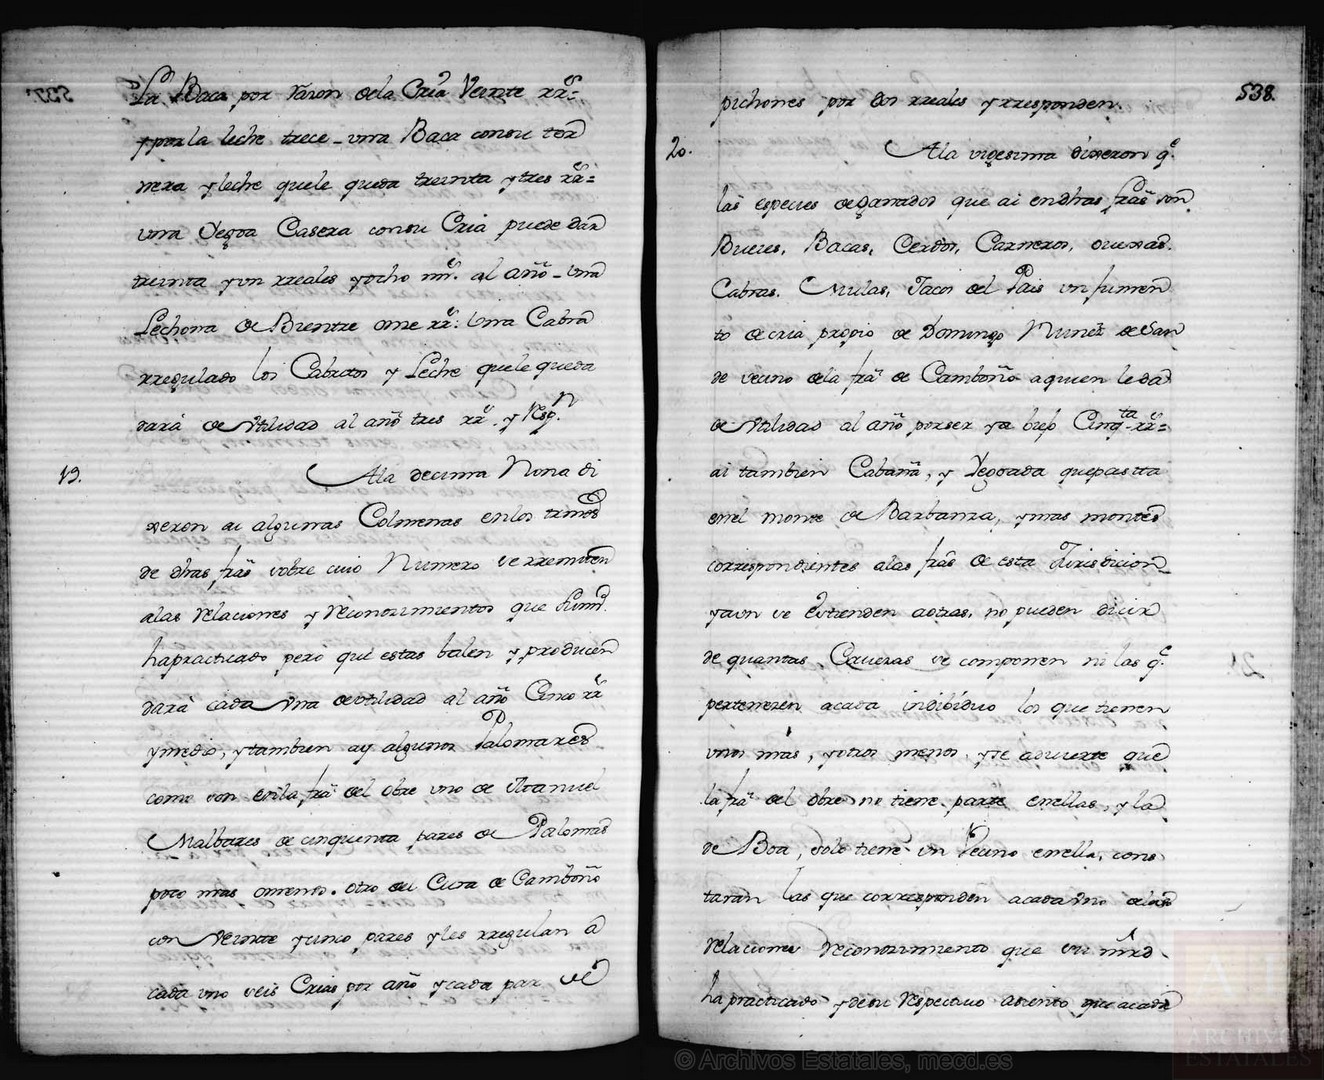 La Baca por razon dela Cria Veinte rr.s=
y por la leche trece - una Baca con su ter
nera y leche quele queda treinta y tres rr.s=
una Yegoa Casera con su Cria puede dar
treinta y un rreales y ocho mrs. al año - Una
Lechona de Bientre onze rr.s: Una Cabra
rregulado los Cabritos y Leche quele queda
dará de Utilidad al año tres rr.s. y Resp.n
19.
Ala decima Nona di
xeron ai algunas Colmenas en los term.os
de dhas fras sobre cuio Numero se rremiten
alas Relaciones y Reconozimientos que
ha practicado pero que estas balen y producen
dará cada una de utilidad al año Cinco rr.s
y medio, y tambien ay algunos Palomares
como son en la fra del obre uno de Manuel
Malbares de cinquenta pares de Palomas
poco mas o menos. otro del Cura de Camboño
con Veinte y cinco pares y les rregulan a
cada uno seis Crias por año y cada par de
538.
pichones por dos rreales y rresponden.
20.
Ala vigesima dixeron q.e
las especies de ganados que ai en dhas fras son
Bueies, Bacas, Cerdos, Carneros, ouejas.
Cabras. Mulas, Jacos del Pais un Jumen
to de cria propio de Domingo Nuñez de San
de vecino dela fra de Camboño a quien le da
de Utilidad al año por ser Cinq.ta rr.s=
ai tambien Cabaña, y Yeguada que pasta
en el monte de Barbanza, y mas montes
correspondientes alas fras de esta Jurisdicion
y aun se Extienden a otras, no pueden dicir
de quantas Cavezas se componen ni las q.e
pertenezen acada indibiduo los que tienen
unos mas, y otros menos, y se aduierte que
la fra del obre no tiene parte en ellas, y la
de Boa, solo tiene un Vecino en ella, cons
taran las que corresponden acada uno de las
Relaciones Reconozimiento que su mrd.
ha practicado y de su Respectiuo asiento que acada
© Archivos Estatales, mecd.es
ARCHIVOS
ESTATALES